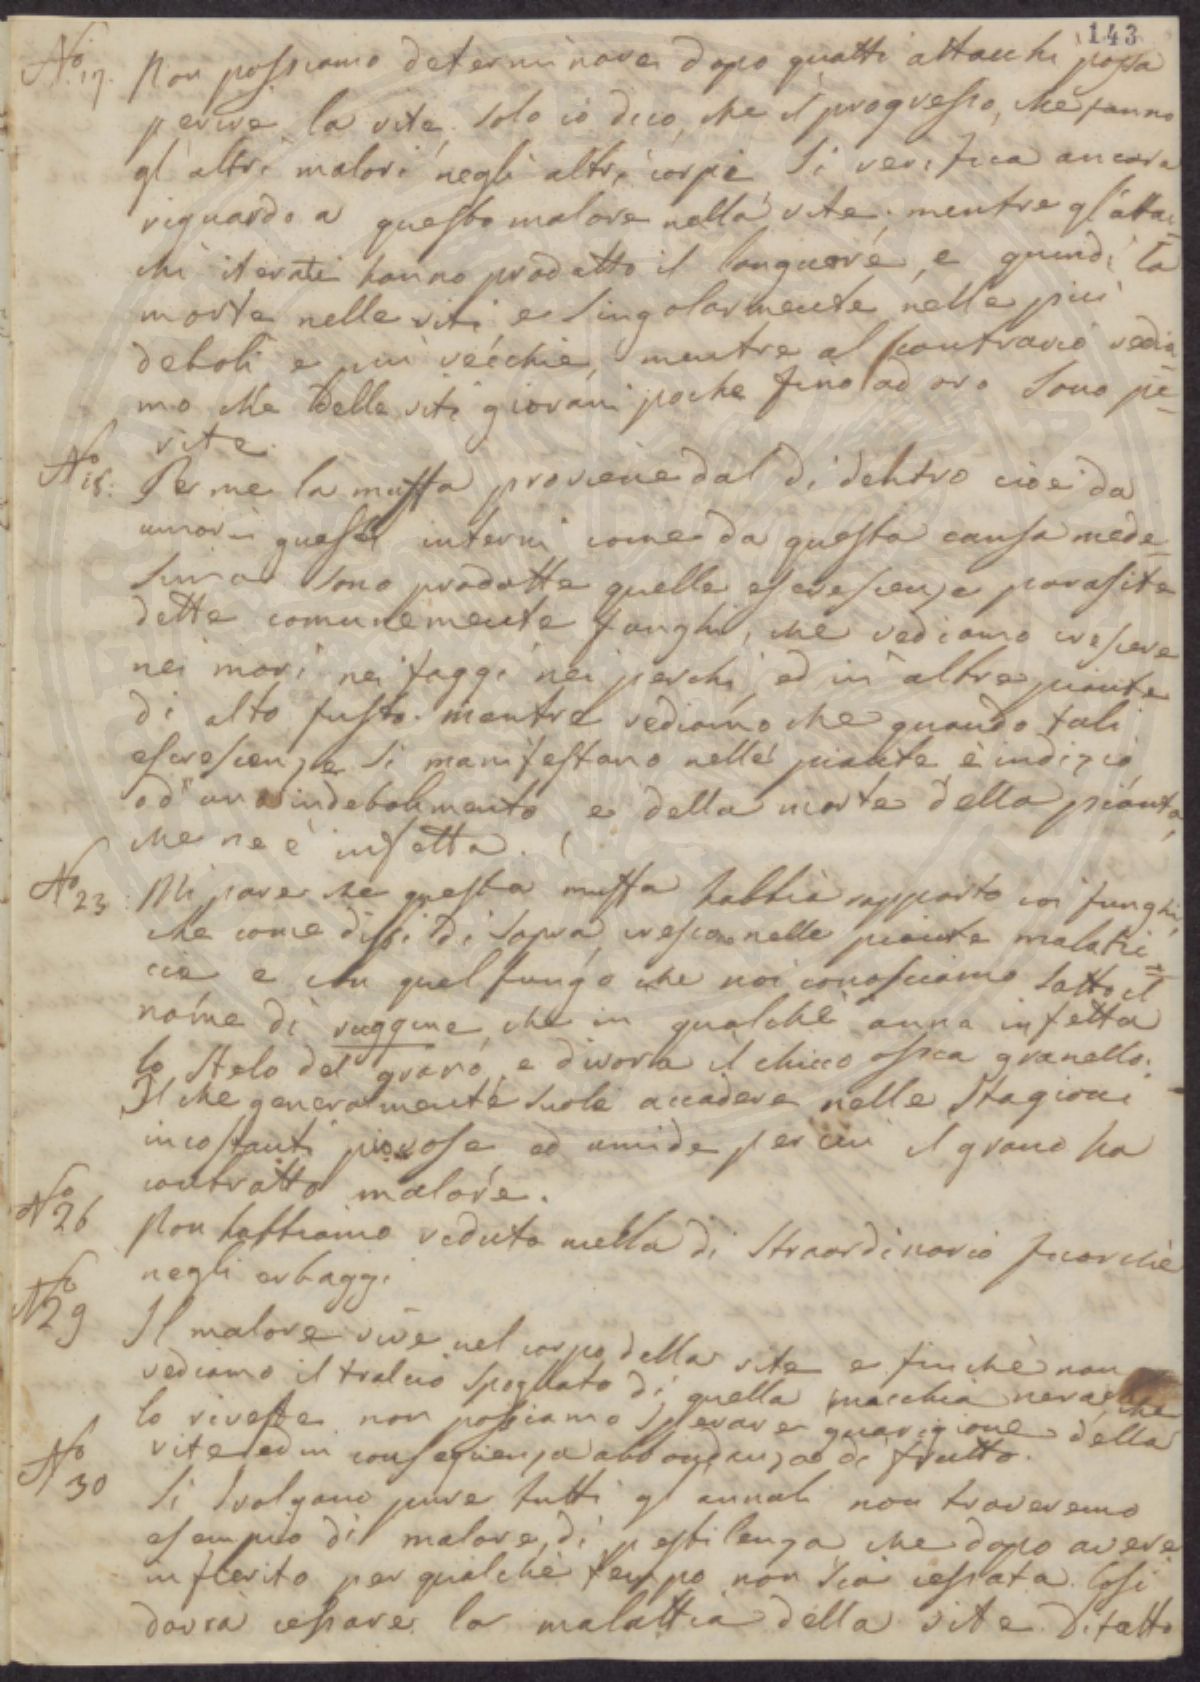 143
No 17. Non possiamo determinare dopo quatti attacchi possa
perire la vite, solo io dico, che il progresso, che fanno
gl'altri malori negli altri corpi si verifica ancora
riguardo a questo malore nella vite, mentre gl'attac=
chi iterati hanno prodotto il languore, e quindi la
morte nelle viti e singolarmente nelle più
deboli e più vecchie, mentre al contrario vedia=
mo che delle viti giovani poche fino ad ora sono pe=
rite.
No 18: Per me la muffa proviene dal di dentro cioè da
umori guasti interni come da questa causa mede=
sima sono prodotte quelle escrescenze parasite
dette comunemente funghi, che vediamo crescere
nei mori nei faggi nei perchi, ed in altre piante
di alto fusto. mentre vediamo che quando tali
escrescenze si manifestano nelle piante è indizio
o d'uno indebolimento, e della morte della pianta,
che ne è infetta.
No 23: Mi pare che questa muffa habbia rapporto coi funghi,
che come dissi di sopra crescono nelle piante malatic=
cie e con quel fungo che noi conosciamo sotto il
nome di ruggine, che in qualche anno infetta
lo stelo del grano, e divora il chicco ossia granello.
Il che generalmente suole accadere nelle stagioni
incostanti piovose ed umide per cui il grano ha
contratto malore.
No 26 Non habbiamo veduto nulla di straordinario fuorchè
negli erbaggi
No 29 Il malore vive nel corpo della vite e finchè non
vediamo il tralcio spogliato di quella macchia nera che
lo riveste non possiamo sperare guarigione della
vite ed in conseguenza abbondanza di frutto.
No 30 Si svolgano pure tutti gl'annali non troveremo
esempio di malore, di pestilenza che dopo avere
infierito per qualche tempo non sia cessata. Così
dovrà cessare la malattia della vite. Difatto